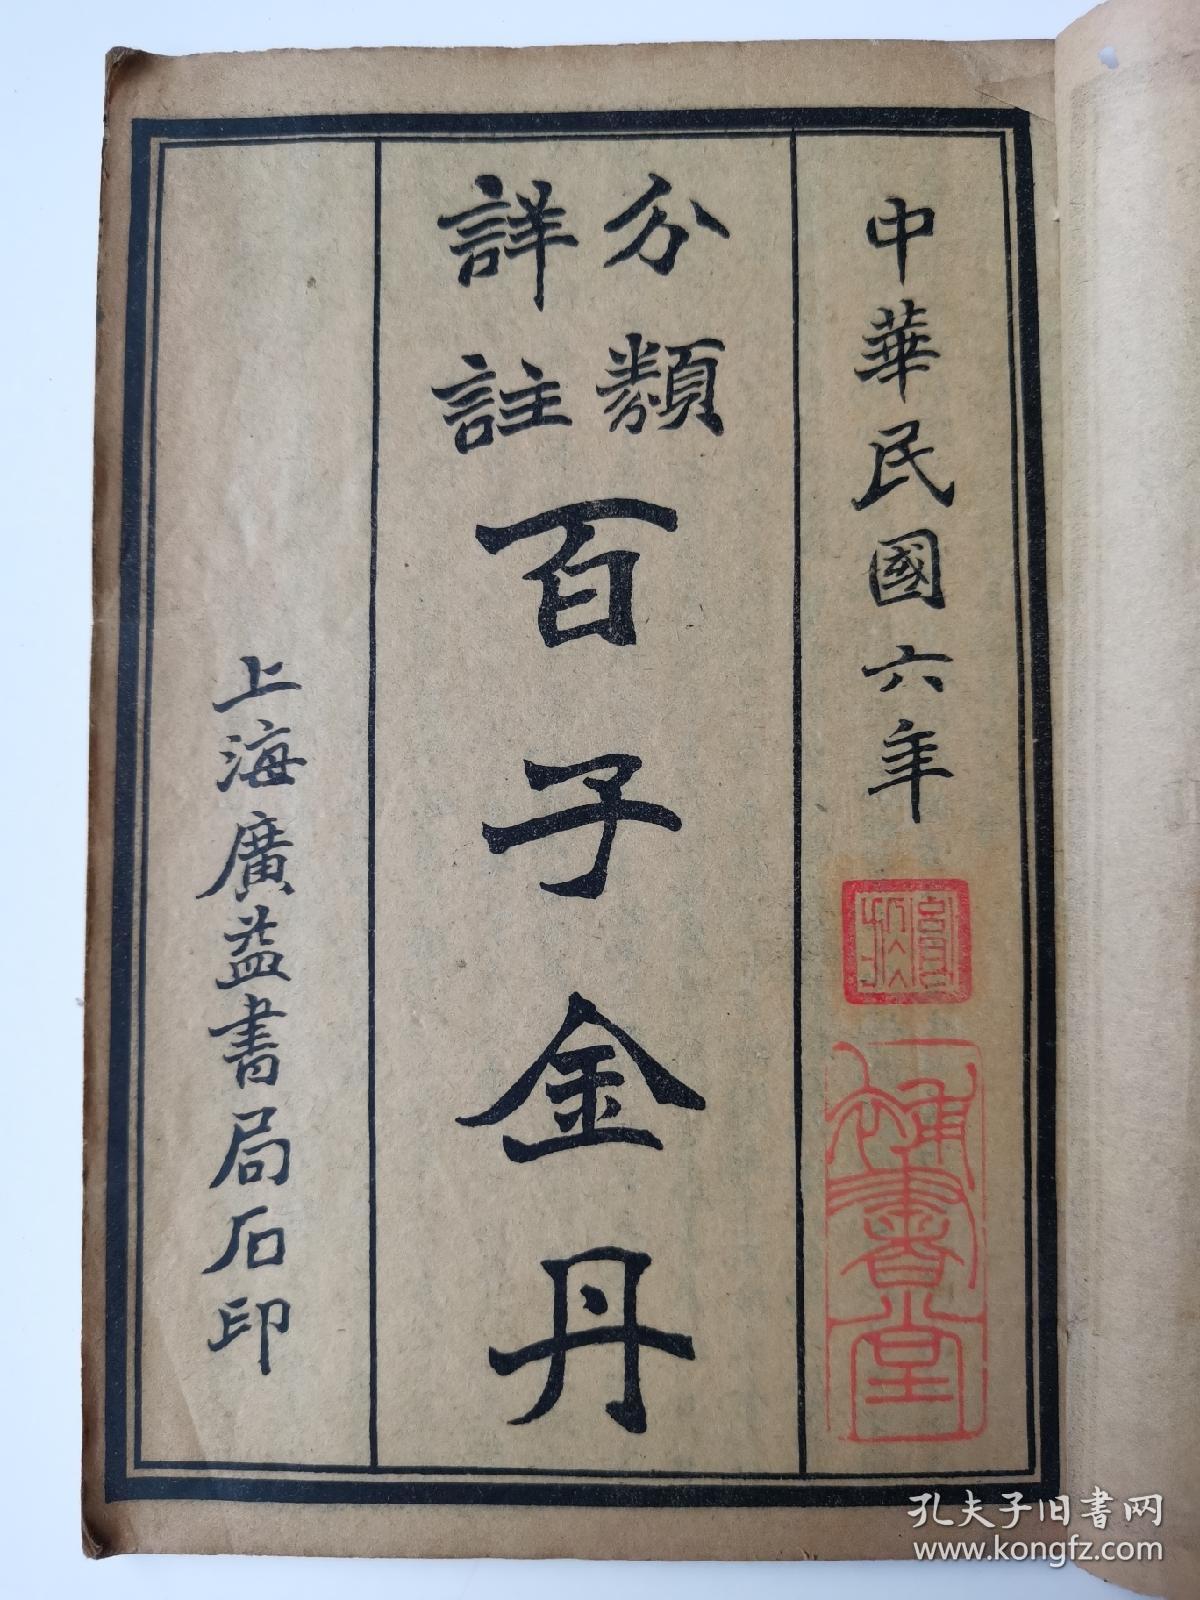 中華民國六年
補書堂
分類
詳註
百子金丹
上海廣益書局石印
孔夫子旧书网
www.kongfz.com